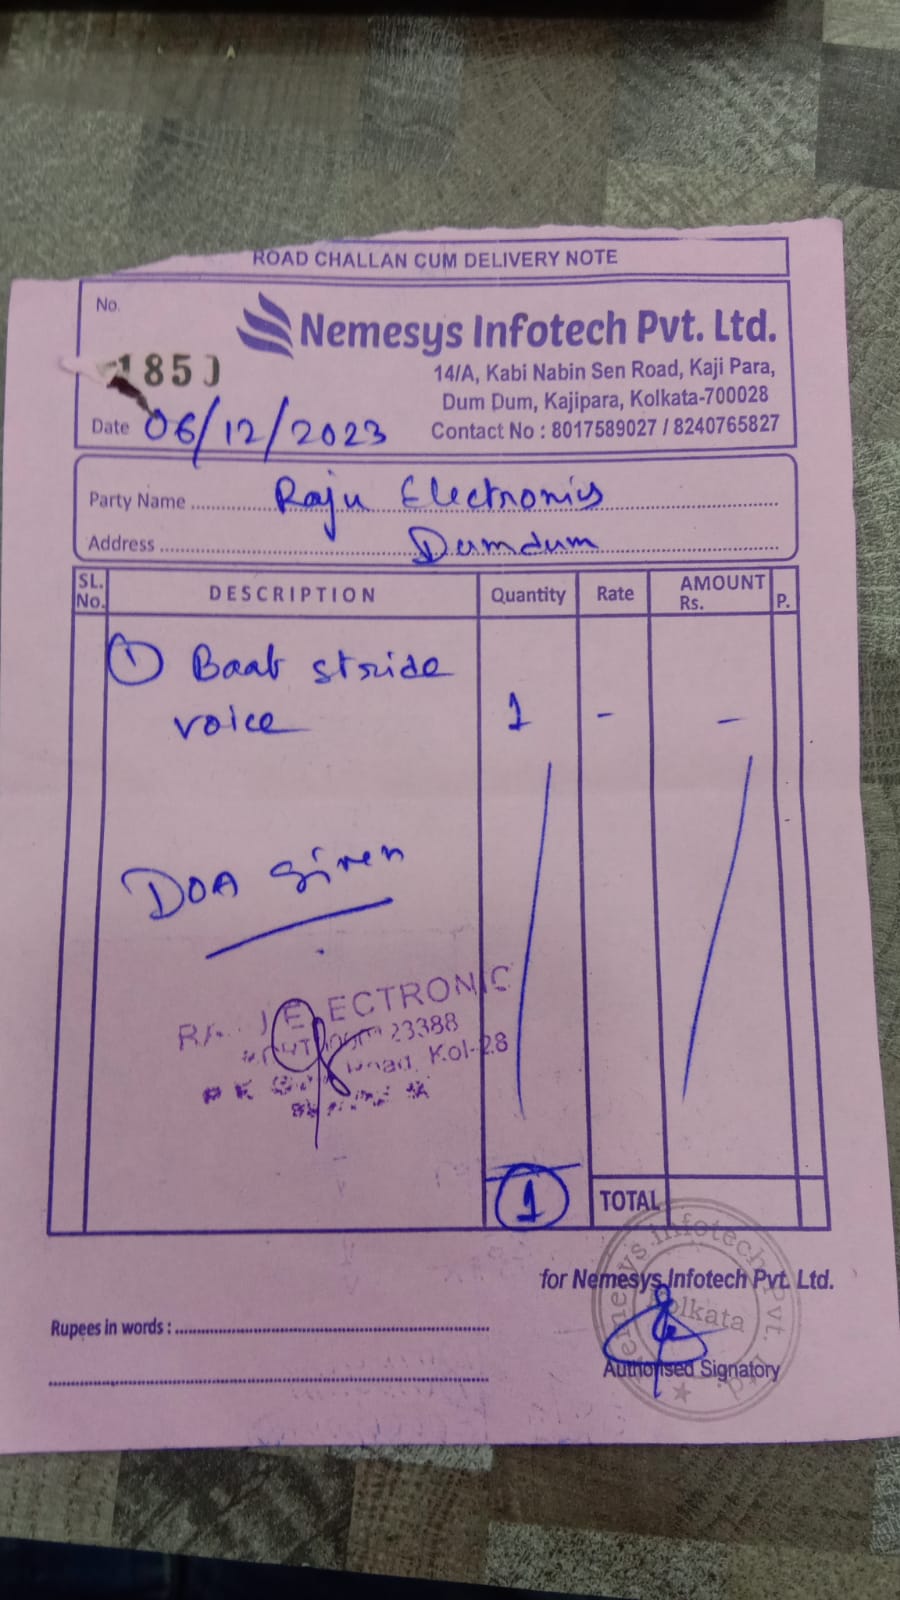 ROAD CHALLAN CUM DELIVERY NOTE
No.
Nemesys Infotech Pvt. Ltd.
1850
14/A, Kabi Nabin Sen Road, Kaji Para,
Dum Dum, Kajipara, Kolkata-700028
Date 06/12/2023
Contact No : 8017589027 / 8240765827
Party Name Raju Electronics
Address Dumdum
SL. No. DESCRIPTION Quantity Rate AMOUNT Rs. P.
① Baat stride
voice 1 - -
DOA given
ECTRONIC
23388
Kol-28
1 TOTAL
for Nemesys Infotech Pvt. Ltd.
Nemesys Infotech Pvt. Ltd.
Kolkata
Rupees in words :
Authorised Signatory